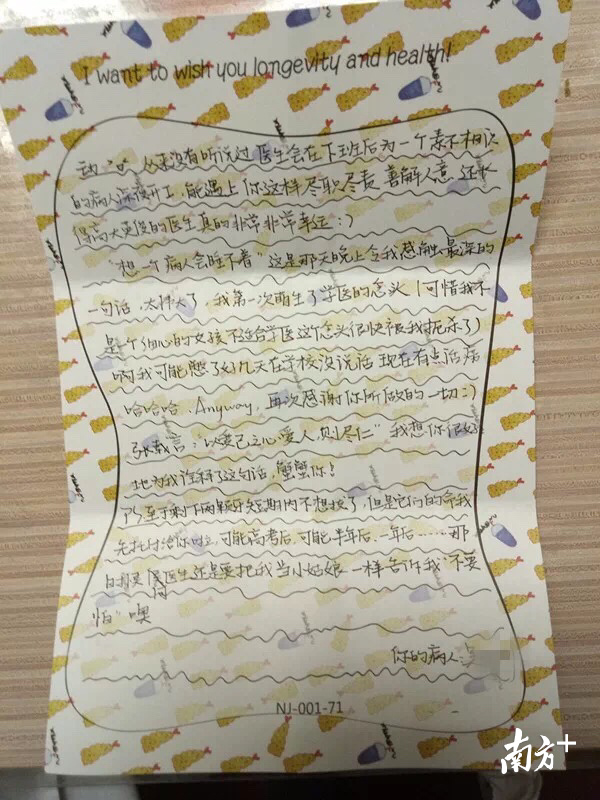 I want to wish you longevity and health!
动。从来没有听说过医生会在下班后为一个素不相识
的病人深夜开工，能遇上你这样尽职尽责 善解人意 还长
得高大英俊的医生真的非常非常幸运：）
"想一个病人会睡不着"这是那天晚上令我感触最深的
一句话，太伟大了，我第一次萌生了学医的念头（可惜我不
是个细心的女孩不适合学医这个念头很快被我扼杀了）
啊我可能憋了好几天在学校没说话 现在有点话痨
哈哈哈．Anyway，再次感谢你所做的一切：）
张载言："以爱己之心爱人，则尽仁" 我想你很好
地为我诠释了这句话，蟹蟹你！
PS：至于剩下两颗牙短期内不想拔了，但是它们的命我
先托付给你啦，可能高考后，可能半年后，一年后……那
医生还是要把我当小姑娘一样告诉我"不要
怕"噢
你的病人：
NJ-001-71
南方+